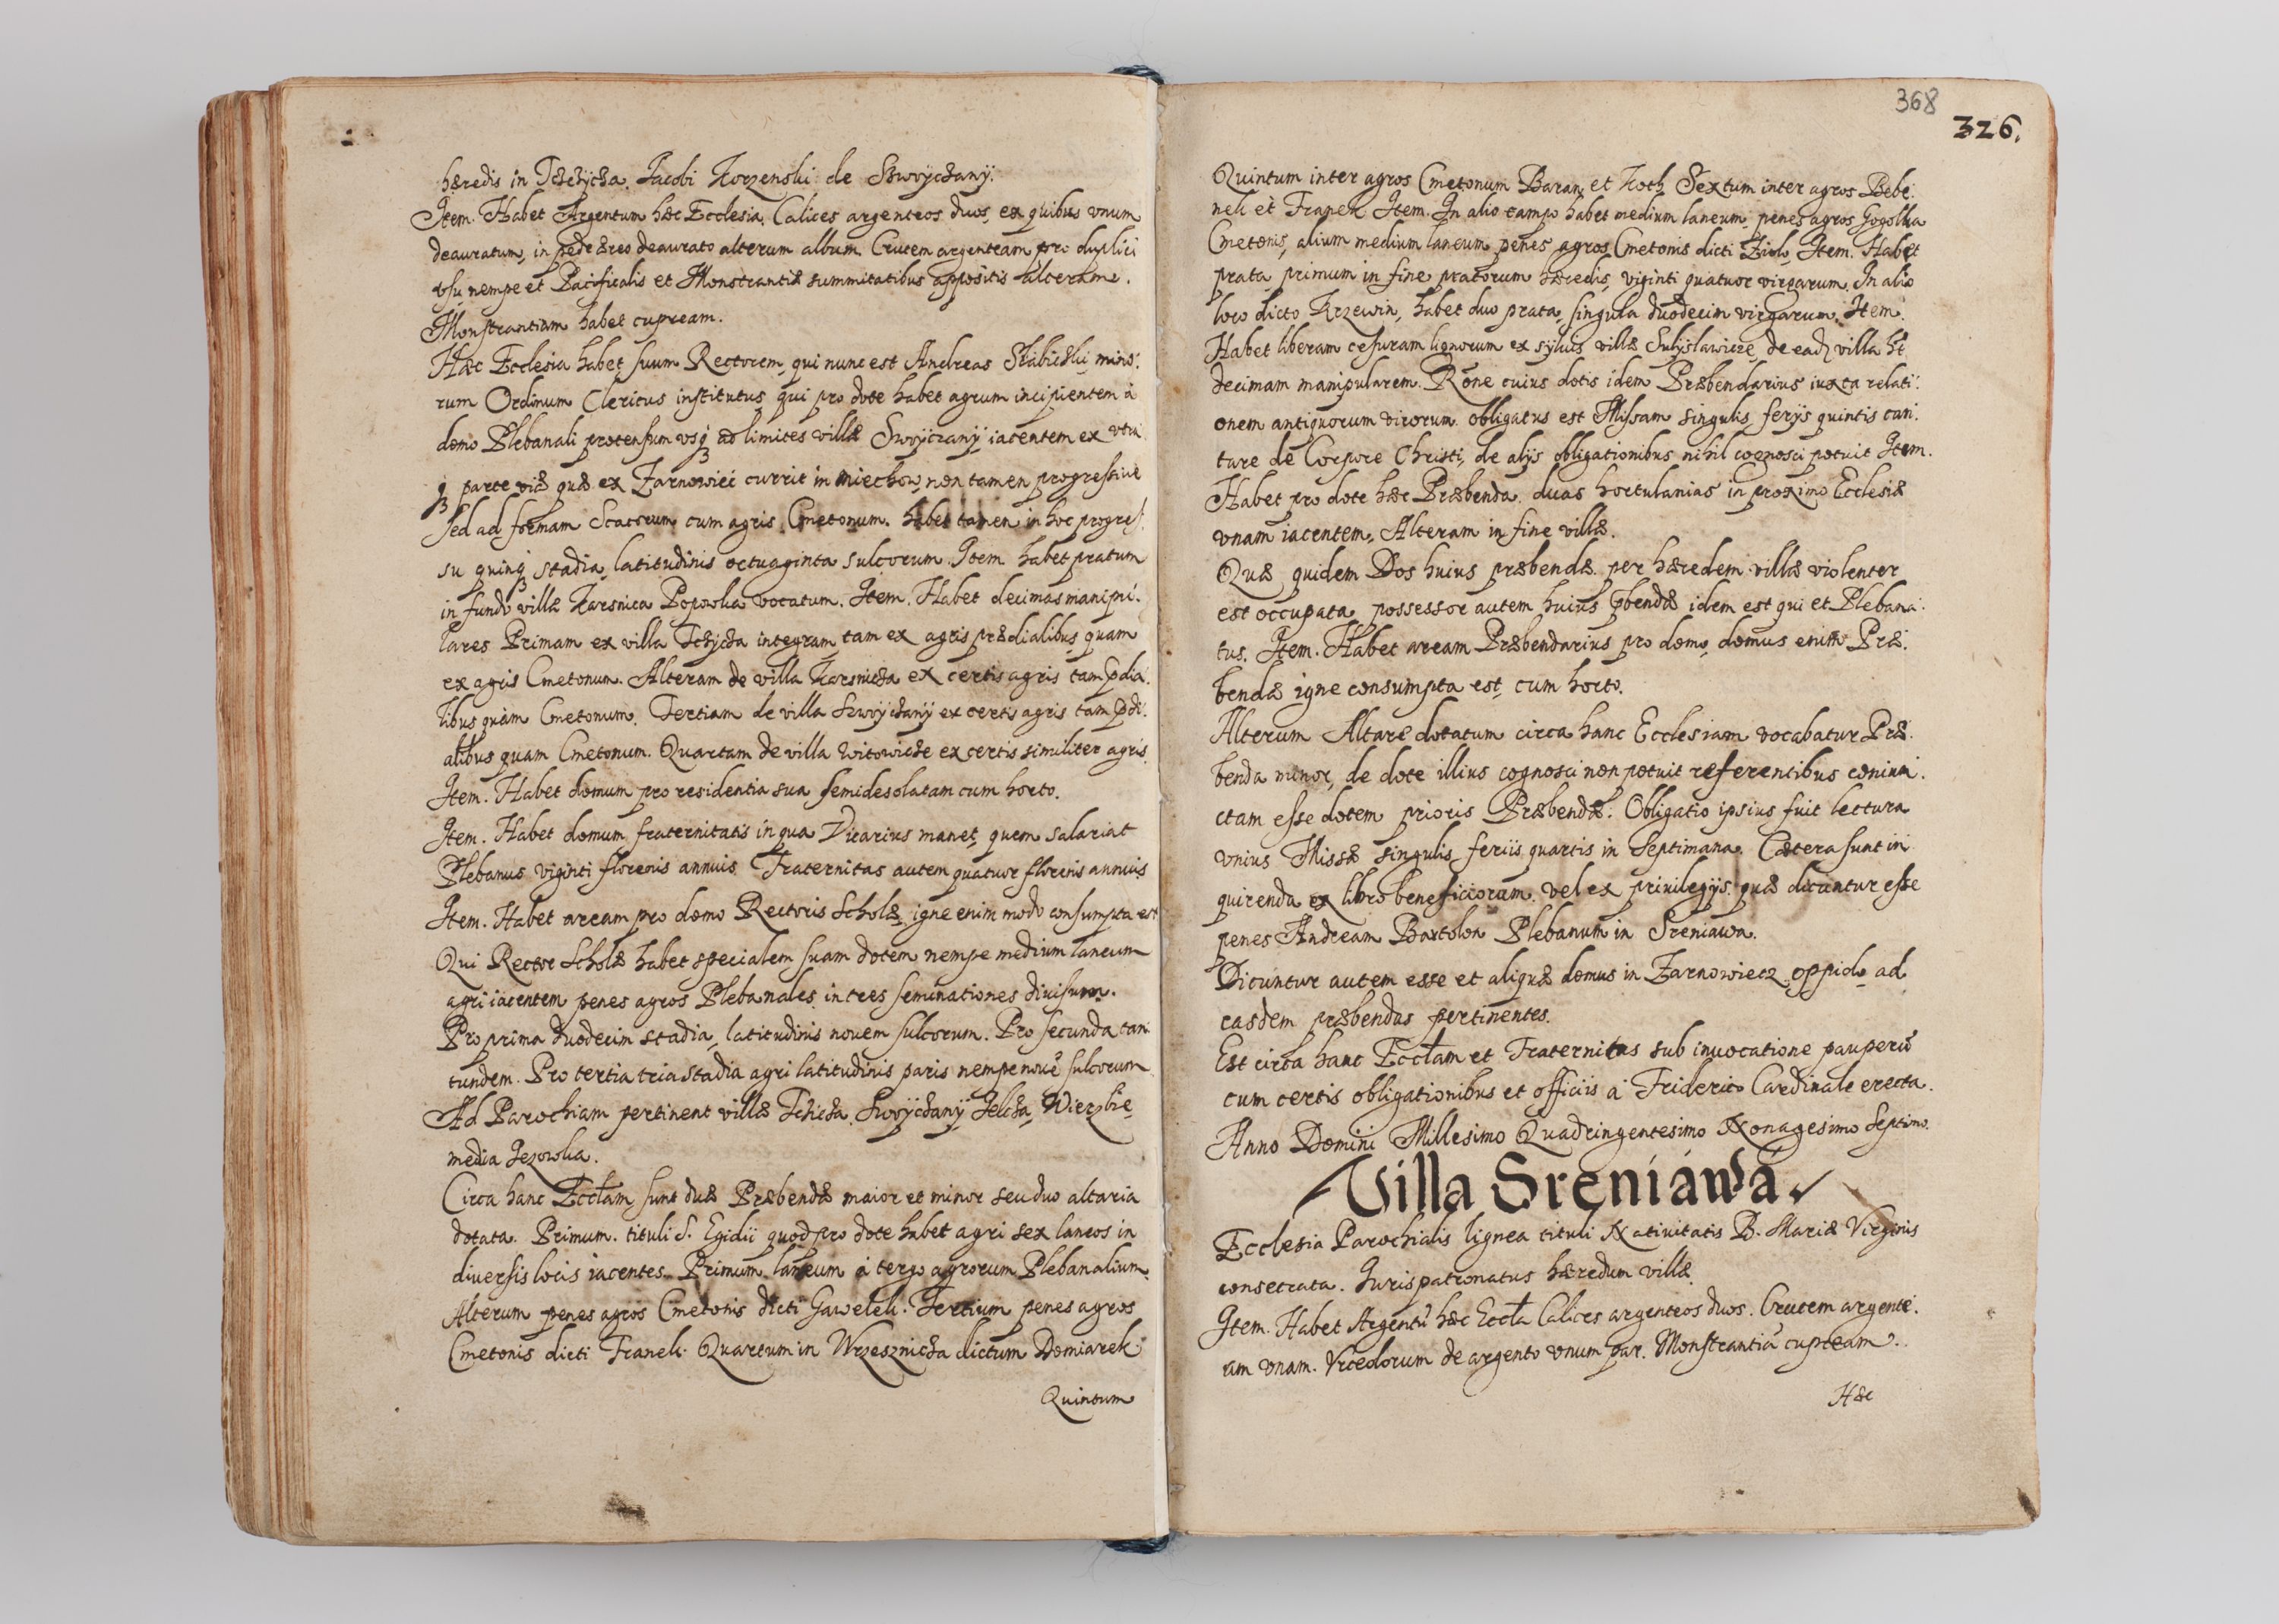 hæredis in Tczczycza. Jacobi Korzenski de Swoyczany.
Item. Habet Argentum hæc Ecclesia. Calices argenteos duos, ex quibus vnum
deauratum, in pede æreo deaurato alterum album. Crucem argenteam pro duplici
vsu nempe et Pacificalis et Monstrantiæ summitatibus appositis alteram.
Monstrantiam habet cupream.
Hæc Ecclesia habet suum Rectorem, qui nunc est Andreas Skabiczki mino:
rum Ordinum Clericus institutus, qui pro dote habet agrum incipientem à
domo Plebanali protensum vsq; ad limites villæ Swoyczany iacentem ex vtra
q; parte viæ quæ ex Zarnowiec currit in Miechow, non tamen progressiuè
sed ad formam Scacorum cum agris Cmetonum. habet tamen in hoc progres
su quinq; stadia, latitudinis octuaginta sulcorum. Item habet pratum
in fundo villæ Karsnica Popowka vocatum. Item. Habet decimas manipu:
lares Primam ex villa Tczycza integram, tam ex agris prædialibus, quam
ex agris Cmetonum. Alteram de villa Karsnicza ex certis agris tam pdia:
libus quàm Cmetonum. Tertiam de villa Swoyczany ex certis agris tam pdi:
alibus quam Cmetonum. Quartam de villa Witowicze ex certis similiter agris.
Item. Habet domum pro residentia sua semidesolatam cum horto.
Item. Habet domum fraternitatis in qua Vicarius manet, quem salariat
Plebanus viginti florenis annuis. Fraternitas autem quatuor florenis annuis
Item. Habet aream pro domo Rectoris Scholæ, igne enim modo consumpta est
Qui Rector Scholæ habet specialem suam dotem nempe medium laneum
agri iacentem penes agros Plebanales in tres seminationes diuisum.
Pro prima duodecim stadia, latitudinis nouem sulcorum. Pro secunda tan
tundem. Pro tertia tria stadia agri latitudinis paris nempe nouē sulcorum
Ad Parochiam pertinent villæ Tczicza, Swoyczany, Jelcza, Wierzbie
media Jezowka.
Circa hanc Eccłam sunt duæ Præbendæ maior et minor seu duo altaria
dotata. Primum. tituli S. Egidii quod pro dote habet agri sex laneos in
diuersis locis iacentes. Primum laneum à tergo agrorum Plebanalium.
Alterum penes agros Cmetonis dicti Gawelek. Tertium penes agros
Cmetonis dicti Franek. Quartum in Wrzesznicza dictum Domiarek
Quintum
368
326.
Quintum inter agros Cmetonum Baran, et Koth. Sextum inter agros Bebe:
nek et Franek Item. In alio campo habet medium laneum, penes agros Gogolka
Cmetonis, alium medium laneum penes agros Cmetonis dicti Ziolo, Item. Habet
prata, primum in fine pratorum hæredis, viginti quatuor virgarum. In alio
loco dicto Krzewin, habet duo prata, singula duodecim virgarum. Item.
Habet liberam cesuram lignorum ex syluis villæ Sulislawicze, de ead; villa ht
decimam manipularem. Rone cuius dotis idem Præbendarius iuxta relati:
onem antiquorum virorum obligatus est Missam singulis ferijs quintis can:
tare de Corpore Christi, de alijs obligationibus nihil cognosci potuit Item.
Habet pro dote hæc Præbenda. duas hortulanias in proximo Ecclesiæ
vnam iacentem, Alteram in fine villæ.
Quæ quidem Dos huius præbendæ per hæredem villæ violenter
est occupata, possessor autem huius pbendæ idem est qui et Plebana:
tus. Item. Habet aream Præbendarius pro domo, domus enim Præ:
bendæ igne consumpta est, cum horto.
Alterum Altare dotatum circa hanc Ecclesiam vocabatur Præ:
benda minor, de dote illius cognosci non potuit referentibus coniun:
ctam esse dotem prioris Præbendæ. Obligatio ipsius fuit lectura
vnius Missæ singulis feriis quartis in Septimana. Cætera sunt in
quirenda ex libro beneficiorum vel ex priuilegijs quæ dicuntur esse
penes Andream Bartolon Plebanum in Sreniawa.
Dicuntur autem esse et aliquæ domus in Zarnowiecz oppido ad
easdem præbendas pertinentes.
Est circa hanc Eccłam et Fraternitas sub inuocatione pauperū
cum certis obligationibus et officiis à Friderico Cardinale erecta.
Anno Domini Millesimo Quadringentesimo Nonagesimo Septimo.
Villa Sreniawa.
Ecclesia Parochialis lignea tituli Natiuitatis B. Mariæ Virginis
consecrata. Iurispatronatus hæredum villæ.
Item. Habet Argentū hæc Eccła Calices argenteos duos. Crucem argente:
am vnam. Vrceolorum de argento vnum par. Monstrantiā cupream.
Hæc